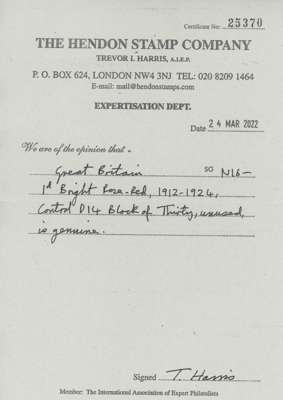 Certificate No: 25370
THE HENDON STAMP COMPANY
TREVOR I. HARRIS, A.I.E.P.
P. O. BOX 624, LONDON NW4 3NJ TEL: 020 8209 1464
E-mail: mail@hendonstamps.com
EXPERTISATION DEPT.
Date 24 MAR 2022
We are of the opinion that -
Great Britain SG N16-
1d Bright Rose-Red, 1912-1924,
Control D14 Block of Thirty, unused,
is genuine.
Signed T. Harris
Member: The International Association of Expert Philatelists